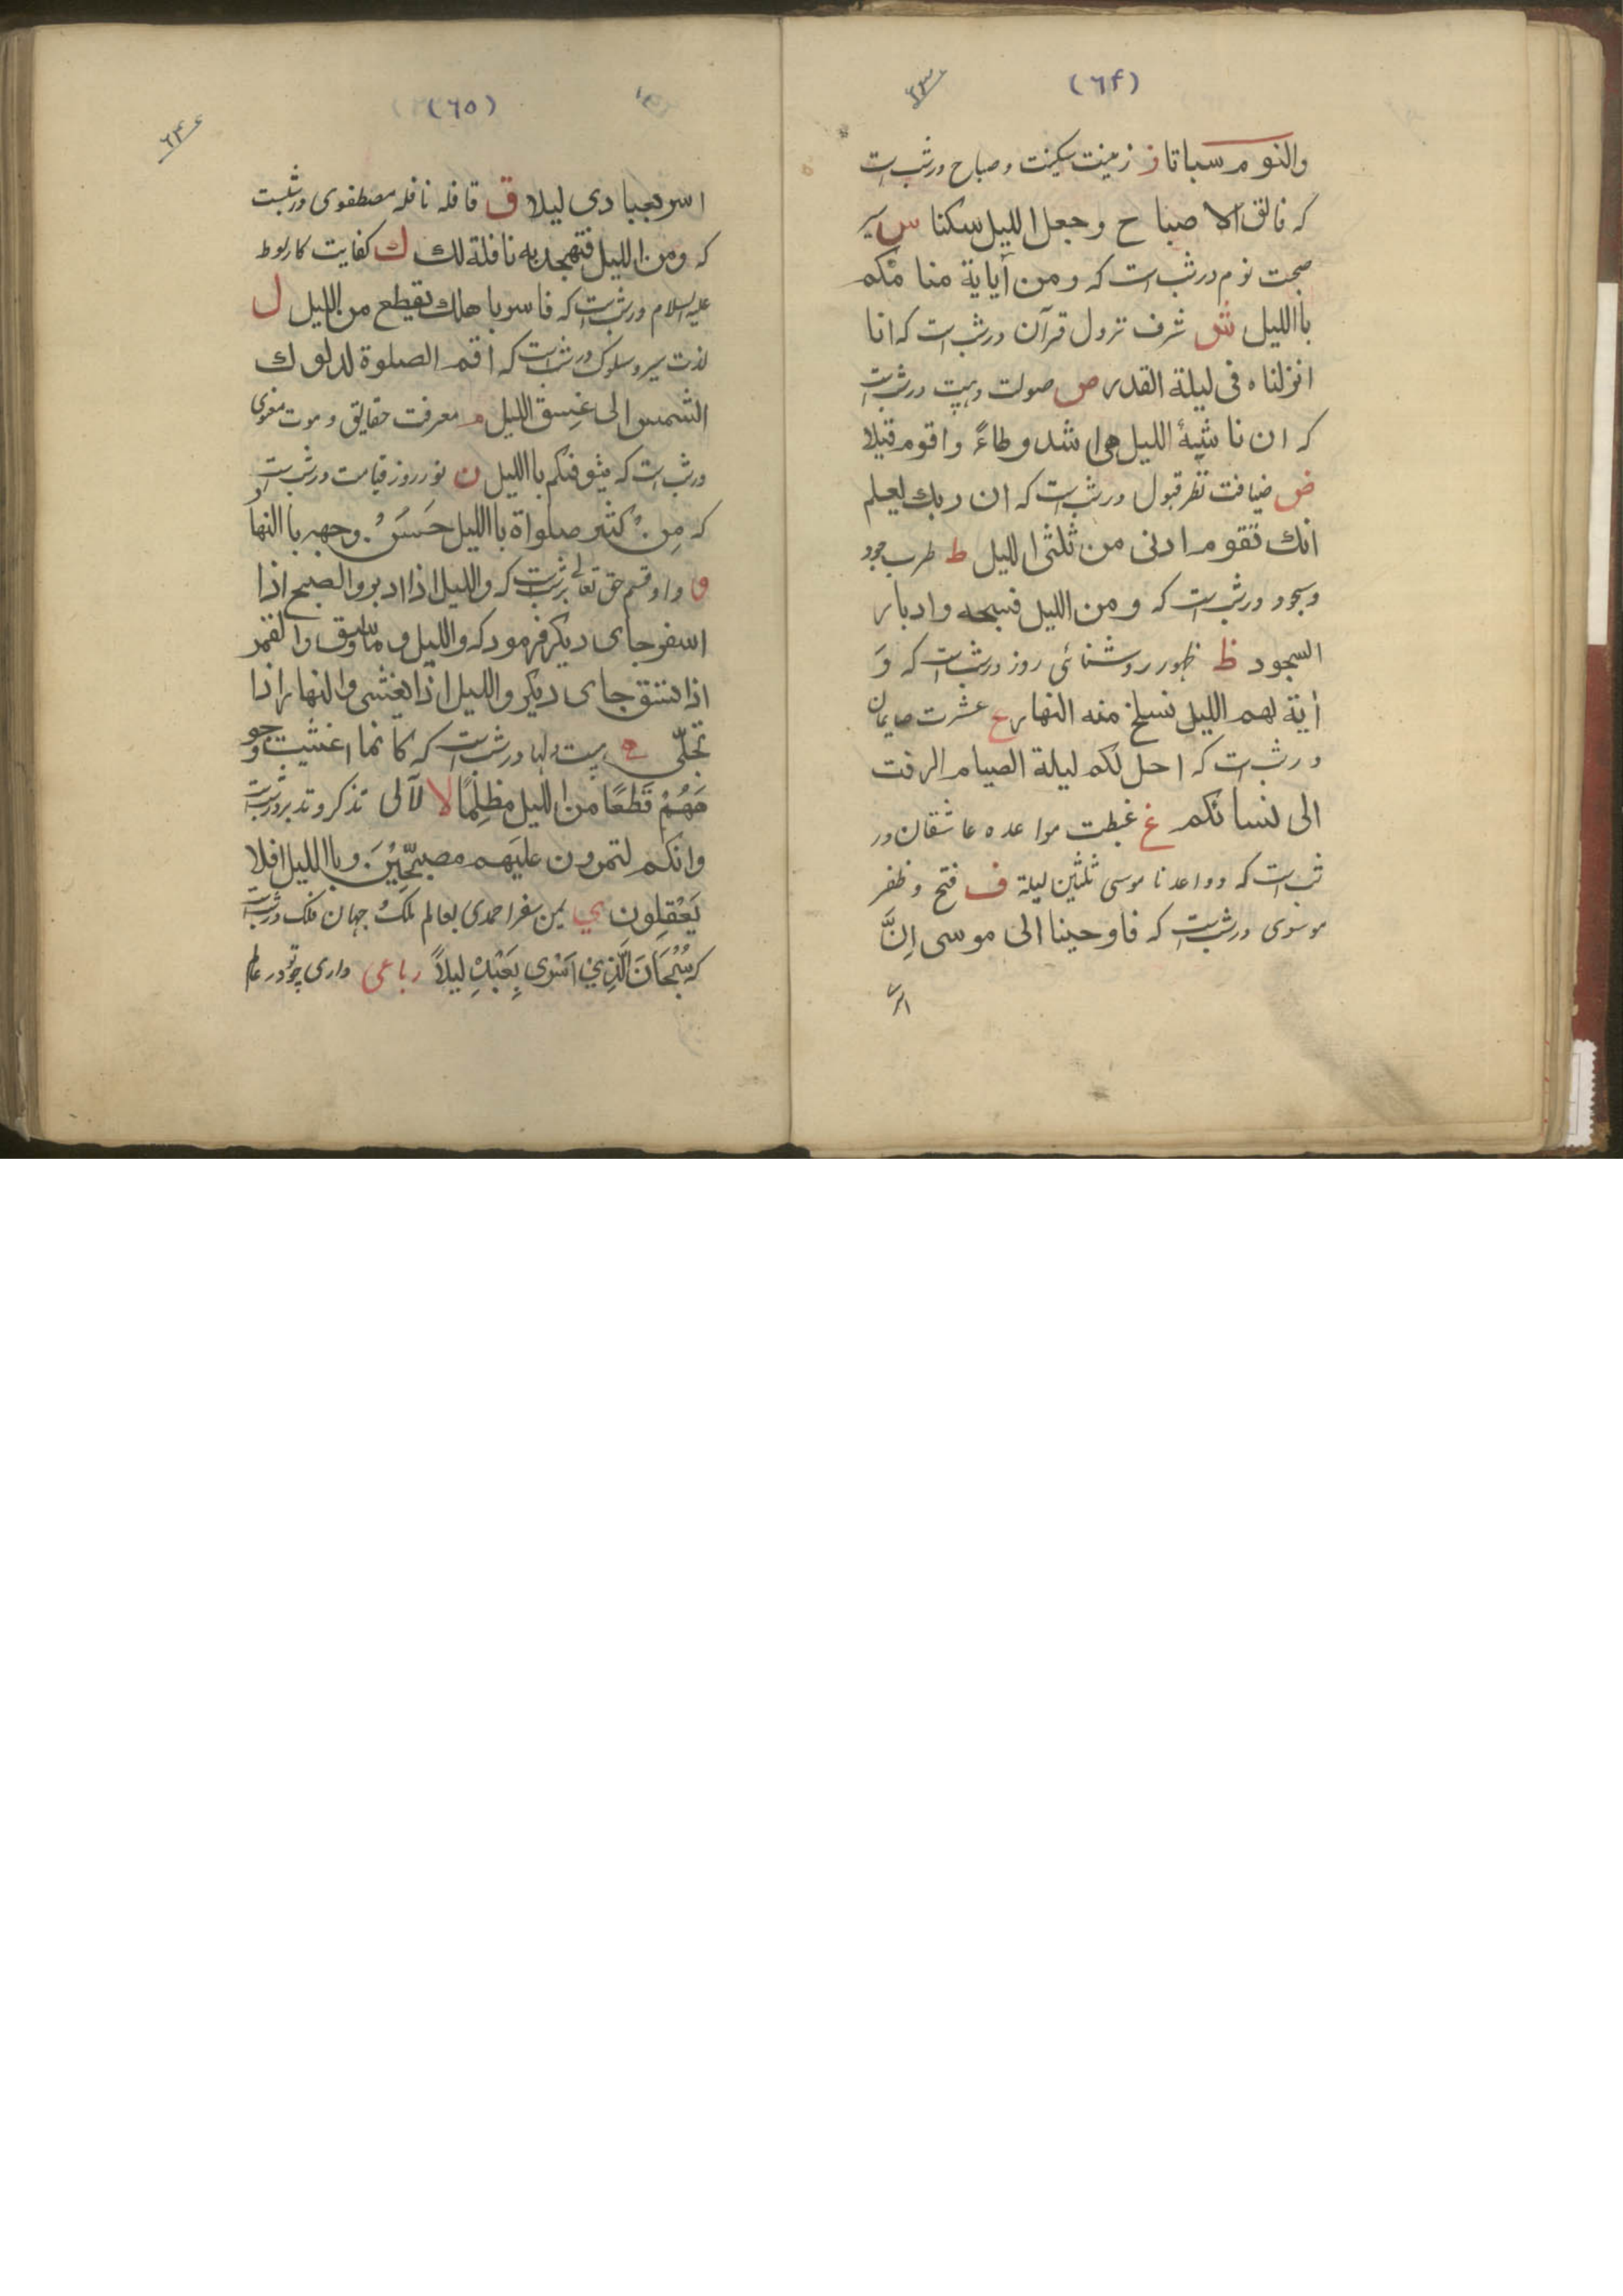 (٦۴)
والنوم سباتا ز زینت سکینت و صباح در شب است
که فالق الاصباح وجعل الليل سكنا س سیر
صحبت نوم در شب است که ومن أياية منامكم
باالليل ش شرف نزول قرآن در شب است که انا
انزلناه فى ليلة القدر ص صولت وهیبت در شب است
که ان ناشئة الليل هى اشد وطاءً واقوم قيلا
ض ضیافت نظر قبول در شب است که ان ربك يعلم
انك تقوم ادنى من ثلثى الليل ط طرب
وسجود در شب است که ومن الليل فسبحه وادبار
السجود ظ ظهور روشنائی روز در شب است که وَ
أية لهم الليل نسلخ منه النهار ع عشرت صایمان
در شب است که احل لكم ليلة الصيام الرفث
الى نسائكم غ غبطت مواعده عاشقان در
شب است که وواعدنا موسى ثلثين ليلة ف فتح و ظفر
موسوی در شب است که فاوحينا الى موسى اِنَّ
(٦٥)
اسر بعبادى ليلا ق قافله نافله مصطفوی در شبست
که ومن الليل فتهجد به نافلة لك ك کفایت کار لوط
علیه السلام در شب است که فاسر باهلك بقطع من الليل ل
لذت سیر و سلوک در شب است که اقم الصلوة لدلوك
الشمس الى غسق الليل م معرفت حقایق و موت معنوی
در شب است که يتوفيكم باالليل ن نور روز قیامت در شب است
که مِن كثير صلواة باالليل حَسَنُ وجهه باالنهار
و واو قسم حق تعالی بر شب است که والليل اذا ادبر والصبح اذا
اسفر جاى ديكر فرمود که والليل وما وسق والقمر
اذا تسق جاى ديكر والليل اذا يغشى والنهار اذا
تجلّى ه هیبت دلها در شب است که كانما اغشيت وجو
هَهُمْ قَطَعًا من الليل مظلِمًا لا لآلی تذکر و تدبر در شب است
وانكم لتمرون عليهم مصبحِينَ وباالليل افلا
يَعْقِلون ي یمن سفر احمدی بعالم ملک جهان فلک در شب است
که سُبْحَانَ الَّذِي اَسْرى بِعَبْدِهِ ليلاً رباعی داری چو تو در عالم